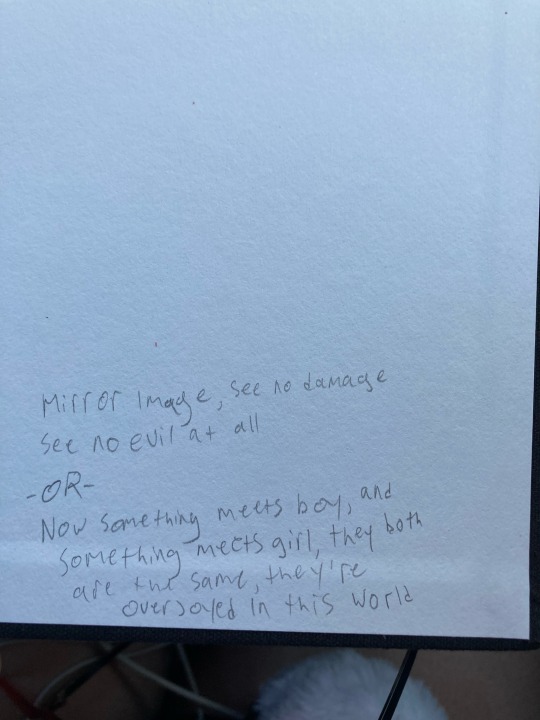 Mirror Image, see no damage
See no evil at all
-OR-
Now something meets boy, and
something meets girl, they both
are the same, they're
overjoyed in this world